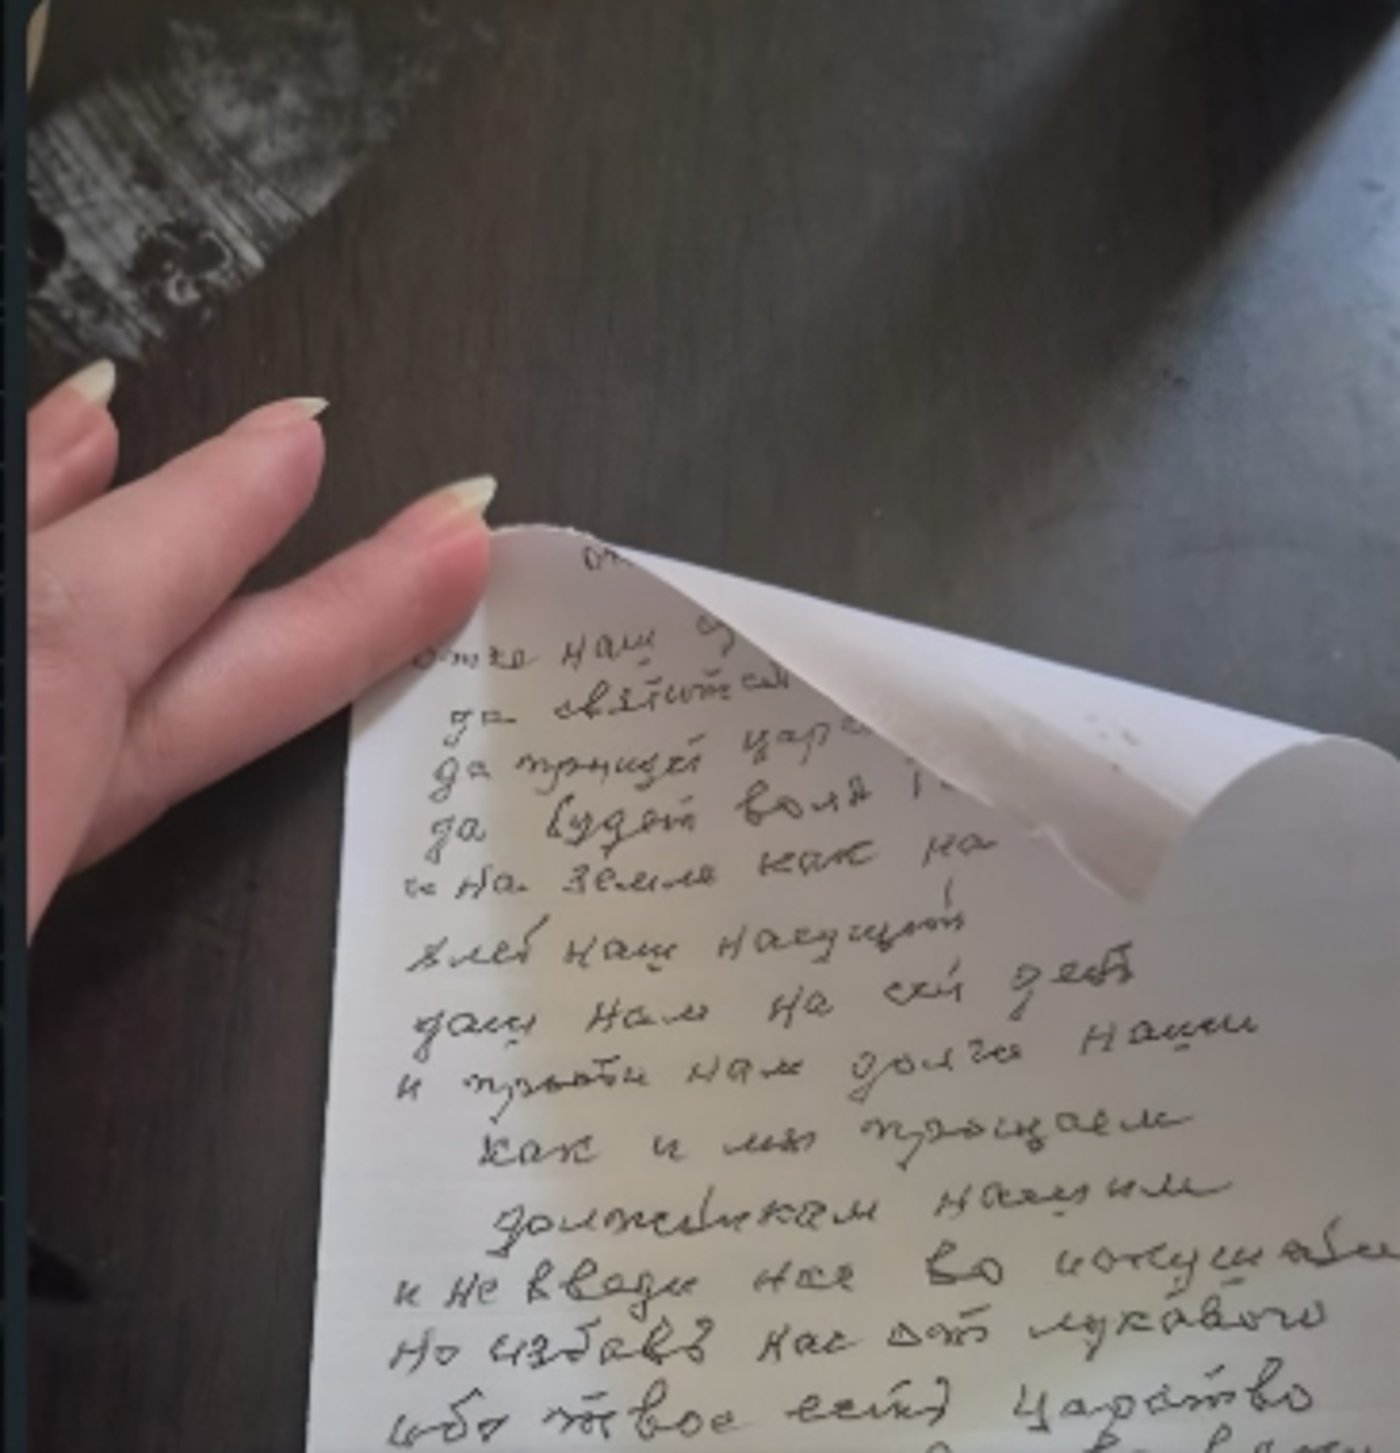 от
отче наш
да святится
да приидет царс
да будет воля
и на земле как на
хлеб наш насущный
дащ нам на сей день
и прости нам долги наши
как и мы прощаем
должникам нашим
и не введи нас во искушени
но избавь нас от лукавого
ибо твое есть царство